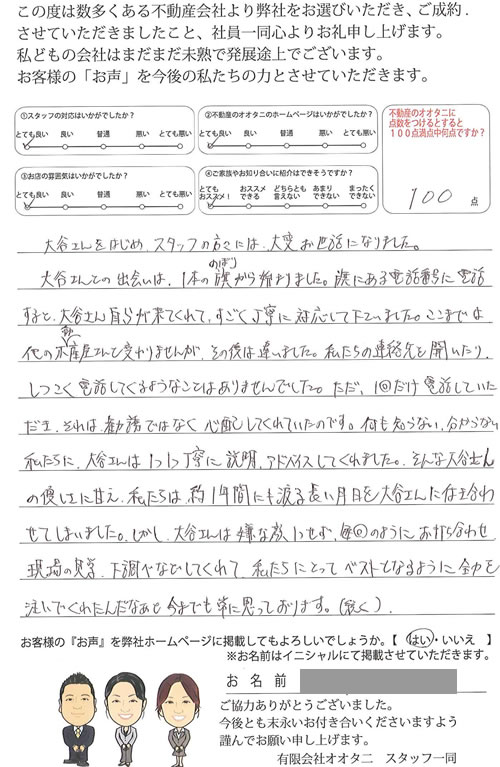 この度は数多くある不動産会社より弊社をお選びいただき、ご成約.
させていただきましたこと、社員一同心よりお礼申し上げます。
私どもの会社はまだまだ未熟で発展途上でございます。
お客様の「お声」を今後の私たちの力とさせていただきます。
①スタッフの対応はいかがでしたか?
とても良い 良い 普通 悪い とても悪い
②不動産のオオタニのホームページはいかがでしたか?
とても良い 良い 普通 悪い とても悪い
③お店の雰囲気はいかがでしたか?
とても良い 良い 普通 悪い とても悪い
④ご家族やお知り合いに紹介はできそうですか?
とてもおススメ! おススメできる どちらとも言えない あまりできない まったくできない
不動産のオオタニに
点数をつけるとすると
100点満点中何点ですか?
100 点
大谷さんをはじめ、スタッフの方々には、大変お世話になりました。
大谷さんとの出会いは、1本の旗(のぼり)から始まりました。旗にある電話番号に電話
すると、大谷さん自らが来てくれて、すごく丁寧に対応して下さいました。ここまでは
他の不動産屋さんと変わりませんが、その後は違いました。私たちの連絡先を聞いたり、
しつこく電話してくるようなことはありませんでした。ただ、1回だけ電話していた
だき、それは、勧誘ではなく心配してくれていたのです。何も知らない、分からない
私たちに、大谷さんは1つ1つ丁寧に説明、アドバイスしてくれました。そんな大谷さん
の優しさに甘え、私たちは、約1年間にも渡る長い月日を大谷さんに付き合わ
せてしまいました。しかし、大谷さんは嫌な顔1つせず、毎回のようにお打ち合わせ
現場の見学、下調べなどしてくれて、私たちにとってベストとなるように全力を
注いでくれたんだなあと今までも常に思っております。
お客様の『お声』を弊社ホームページに掲載してもよろしいでしょうか。【 はい・いいえ 】
※お名前はイニシャルにて掲載させていただきます。
お名前
ご協力ありがとうございました。
今後とも末永いお付き合いくださいますよう
謹んでお願い申し上げます。
有限会社オオタニ スタッフ一同